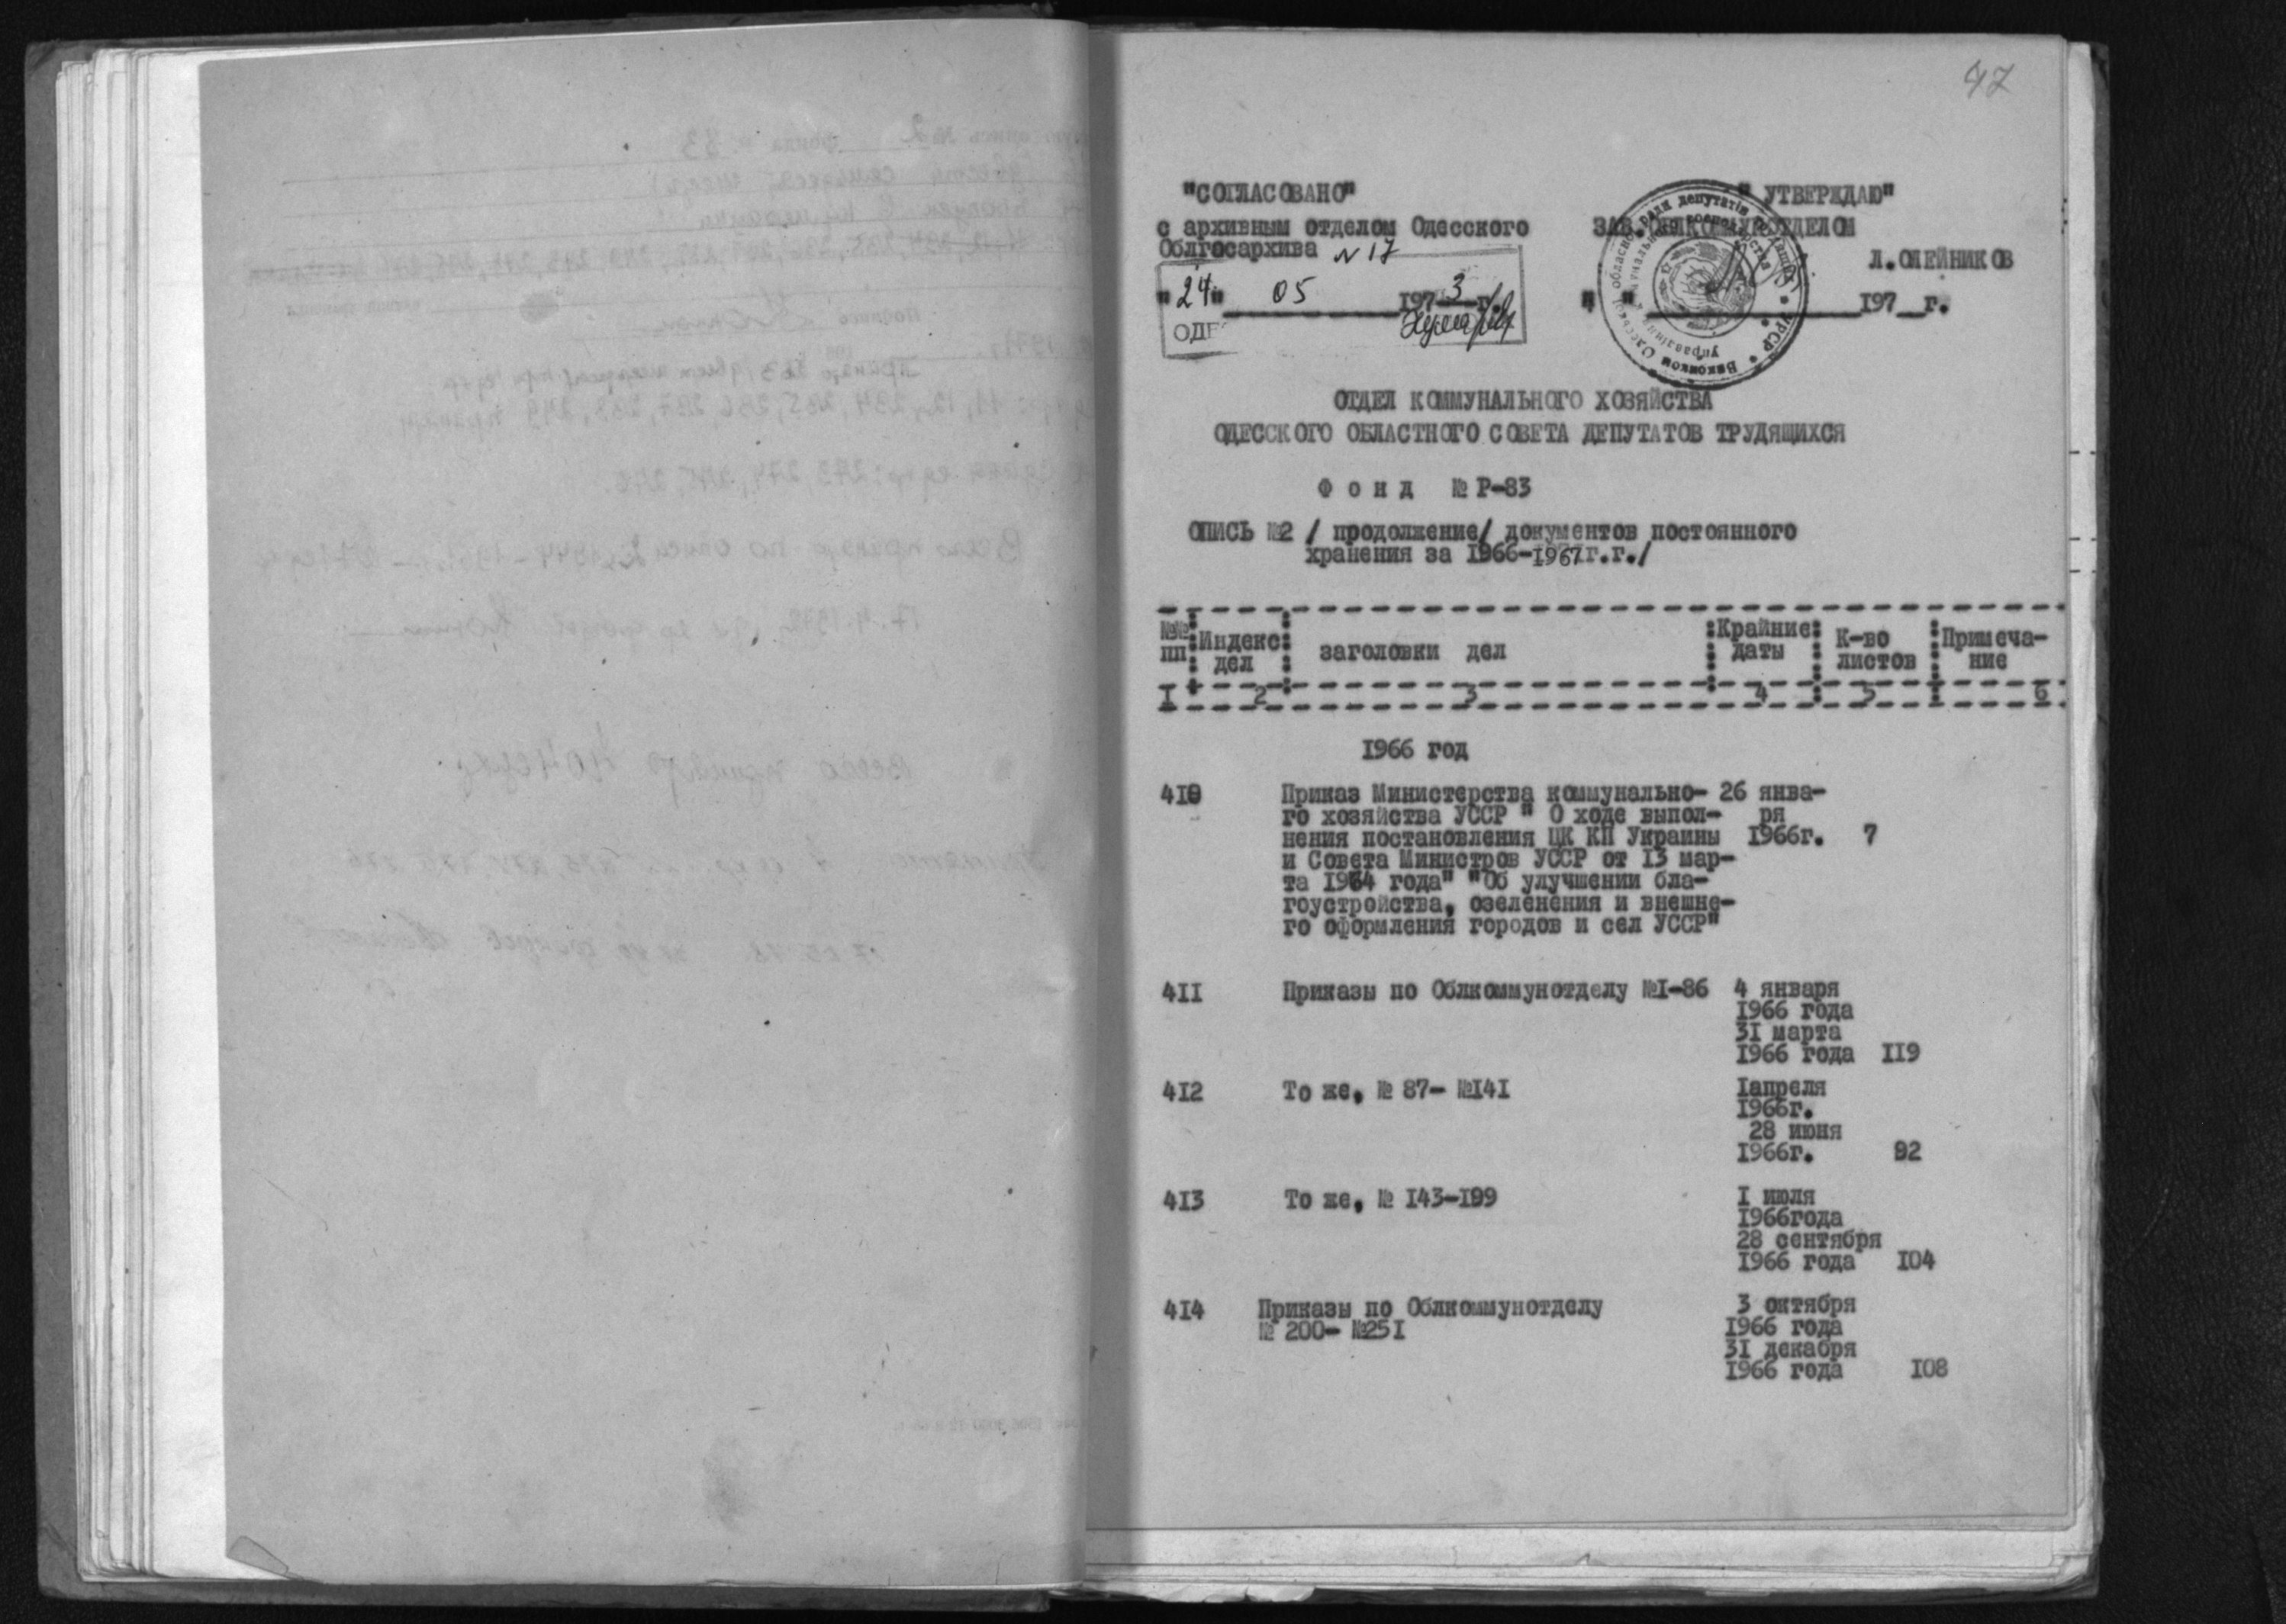 47
"СОГЛАСОВАНО"
с архивным отделом Одесского
Облгосархива N 17
"24" 05 1973 г.
ОДЕ
" УТВЕРЖДАЮ"
ЗАВ.ОБЛКОММУНОТДЕЛОМ
Л.ОЛЕЙНИКОВ
" " 197 г.
ОТДЕЛ КОММУНАЛЬНОГО ХОЗЯЙСТВА
ОДЕССКОГО ОБЛАСТНОГО СОВЕТА ДЕПУТАТОВ ТРУДЯЩИХСЯ
Ф о н д № Р-83
ОПИСЬ №2 / продолжение/ документов постоянного
хранения за 1966-1967г.г./
№№ пп Индекс дел заголовки дел Крайние даты К-во листов Примеча-ние
I 2 3 4 5 6
1966 год
410 Приказ Министерства коммунально- 26 янва-
го хозяйства УССР " О ходе выпол- ря
нения постановления ЦК КП Украины 1966г. 7
и Совета Министров УССР от 13 мар-
та 1964 года" "Об улучшении бла-
гоустройства, озеленения и внешне-
го оформления городов и сел УССР"
4II Приказы по Облкоммунотделу №I-86 4 января
1966 года
3I марта
1966 года II9
4I2 То же, № 87- №I4I Iапреля
1966г.
28 июня
1966г. 92
4I3 То же, № I43-I99 I июля
1966года
28 сентября
1966 года I04
4I4 Приказы по Облкоммунотделу 3 октября
№ 200- №25I 1966 года
3I декабря
1966 года I08